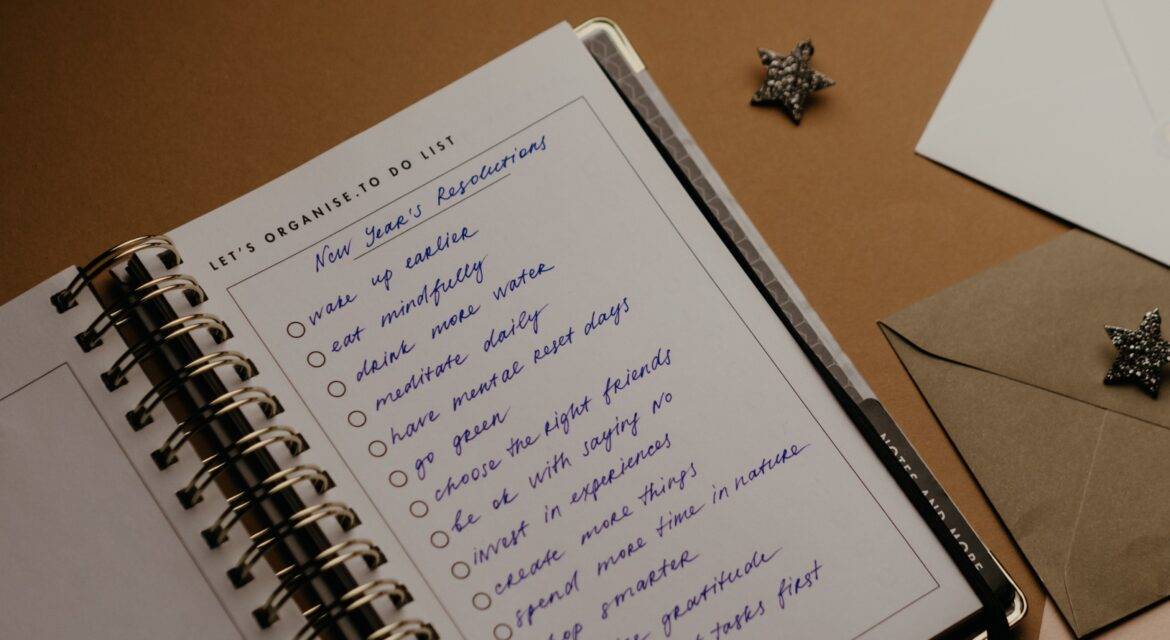 LET'S ORGANISE.TO DO LIST
New Year's Resolutions
wake up earlier
eat mindfully
drink more water
meditate daily
have mental reset days
go green
choose the right friends
be ok with saying no
invest in experiences
create more things
spend more time in nature
smarter
gratitude
tasks first
NOTES AND MORE